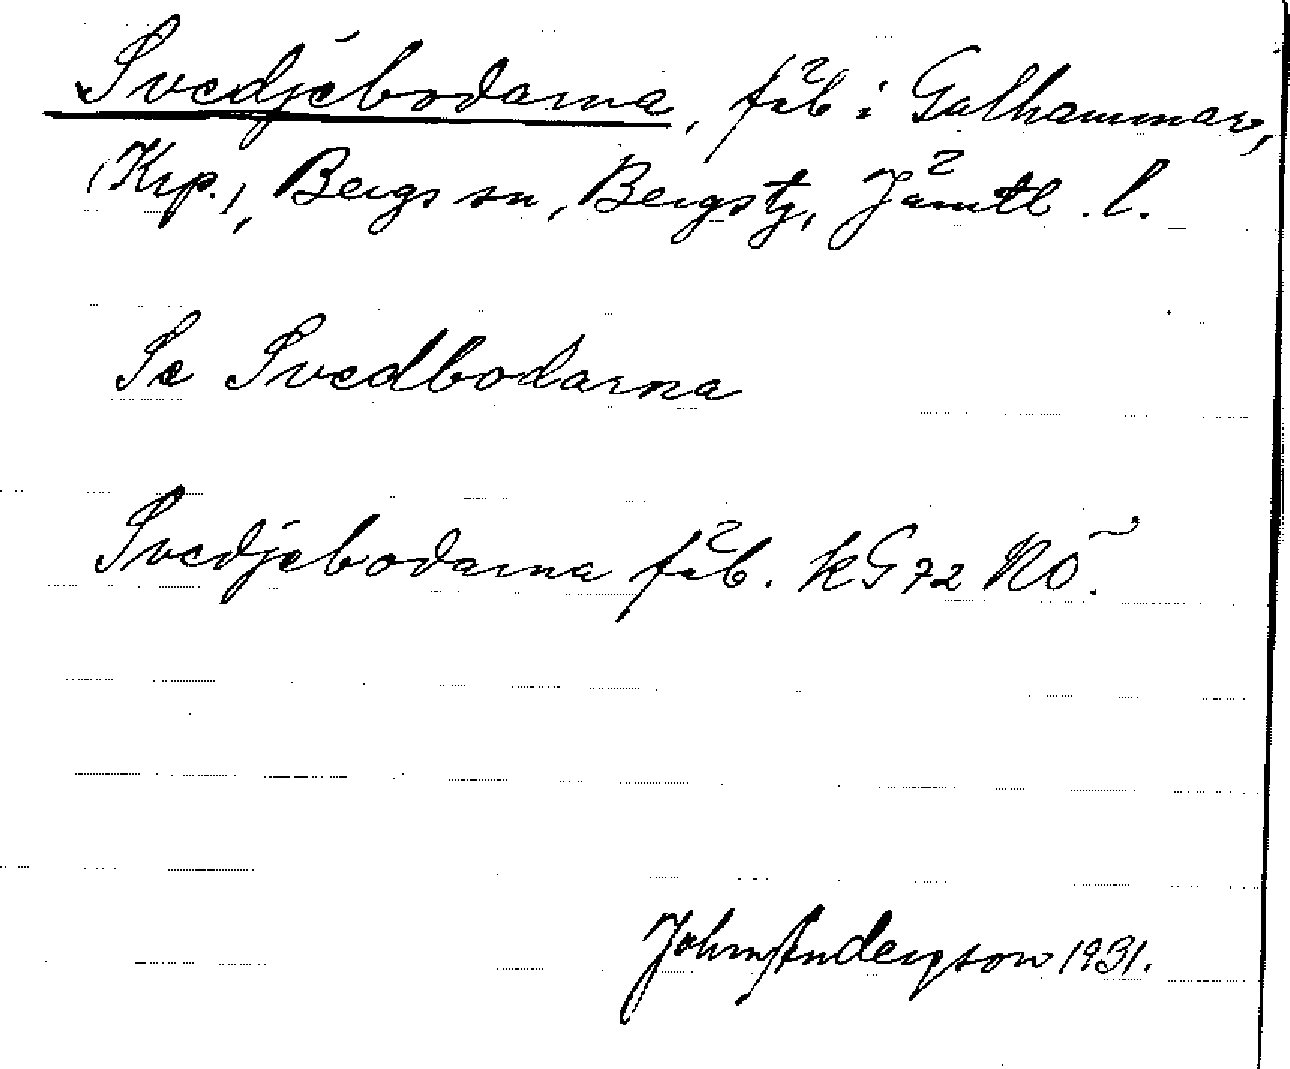 Svedjebodarna, fäb i Galhammar,
(Krp.), Bergs sn, Bergs tg, Jämtl. l.
Se Svedbodarna
Svedjebodarna fäb. KG 72 NÖ.
John Andersson 1931.